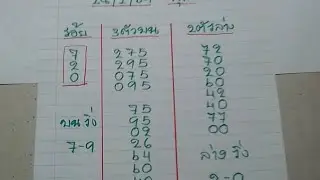 ร้อย 3ตัวบน 2ตัวล่าง
7 275 72
2 295 70
0 075 20
095 60
42
75 40
บนวิ่ง 95 77
02 00
7-9 26
64 ล่างวิ่ง
60
2-0